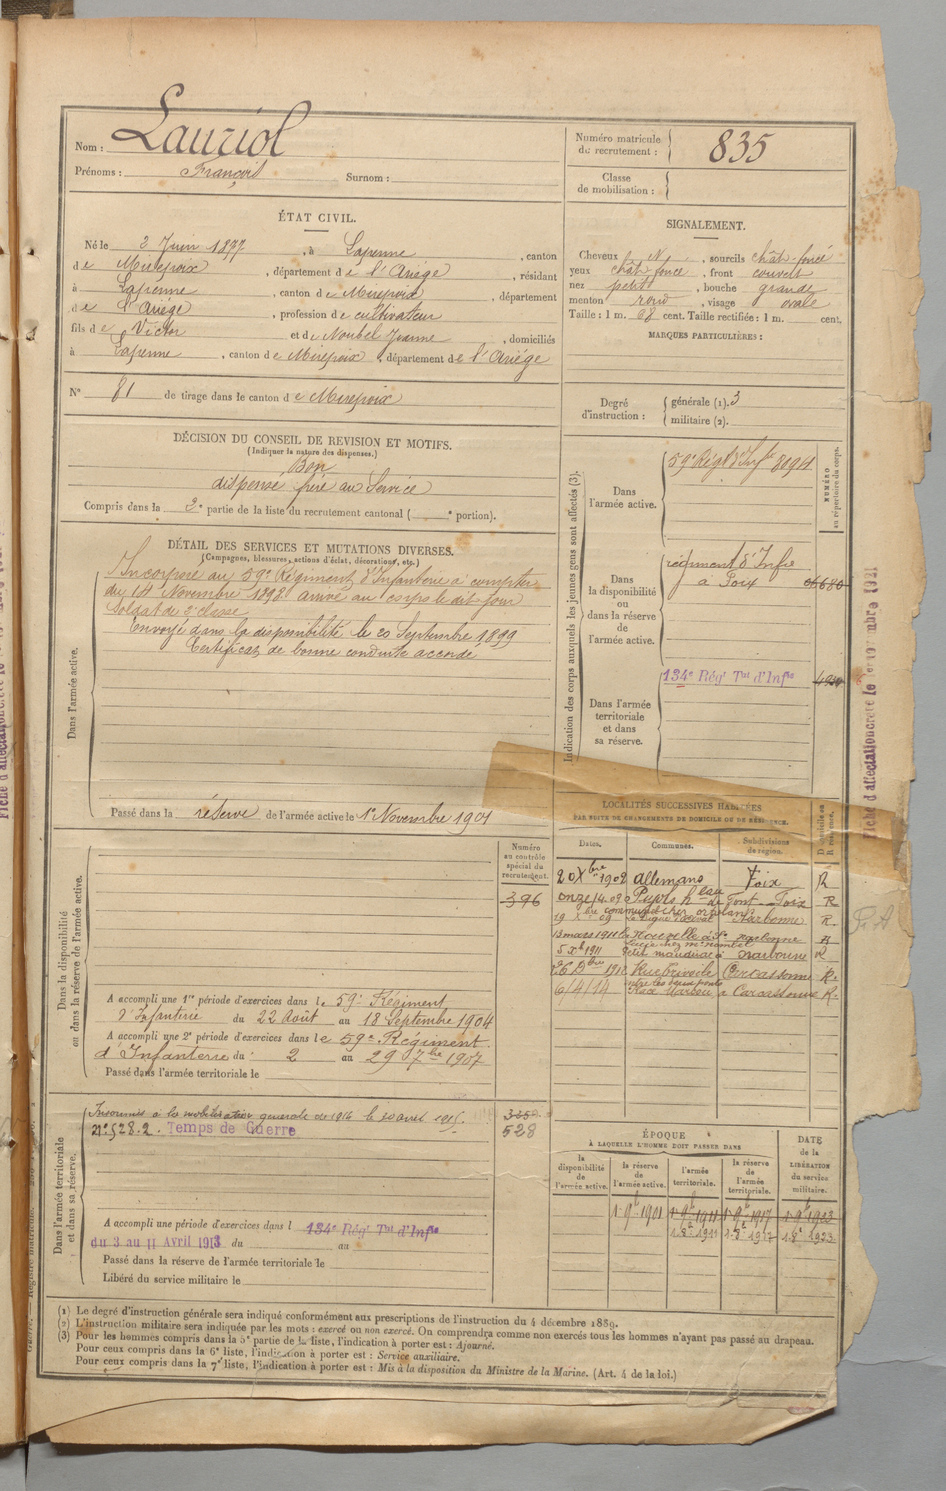 Nom : Lauriol
Prénoms : François Surnom :
Numéro matricule du recrutement : 835
Classe de mobilisation :
ÉTAT CIVIL.
Né le 2 Juin 1877, à Lapenne, canton
de Mirepoix, département de l'Ariége, résidant
à Lapenne, canton de Mirepoix, département
de l'Ariége, profession de cultivateur
fils de Victor et de Noubel Jeanne, domiciliés
à Lapenne, canton de Mirepoix, département de l'Ariége
SIGNALEMENT.
Cheveux N, sourcils chât-foncé
yeux chât-foncé, front couvert
nez petit, bouche grande
menton rond, visage ovale
Taille : 1 m. 68 cent. Taille rectifiée : 1 m. cent.
MARQUES PARTICULIÈRES :
N° 81 de tirage dans le canton de Mirepoix
Degré d'instruction : générale (1). 3
militaire (2).
DÉCISION DU CONSEIL DE REVISION ET MOTIFS.
(Indiquer la nature des dispenses.)
Bon
dispensé frère au Service
Compris dans la 2e partie de la liste du recrutement cantonal ( e portion).
DÉTAIL DES SERVICES ET MUTATIONS DIVERSES.
(Campagnes, blessures, actions d'éclat, décorations, etc.)
Dans l'armée active.
Incorporé au 59e Régiment d'Infanterie à compter
du 14 Novembre 1898 arrivé au corps le dit jour
Soldat de 2e classe
Envoyé dans la disponibilité le 20 Septembre 1899
Certificat de bonne conduite accordé
Passé dans la réserve de l'armée active le 1er Novembre 1901
Indication des corps auxquels les jeunes gens sont affectés (3).
NUMÉRO au répertoire du corps.
Dans l'armée active.
59e Régt d'Infie 8094
Dans la disponibilité ou dans la réserve de l'armée active.
régiment d'Infie
à Foix
Dans l'armée territoriale et dans sa réserve.
134e Régt Tal d'Infie
Fiche d'affectation créée le
1921
LOCALITÉS SUCCESSIVES HABITÉES
PAR SUITE DE CHANGEMENTS DE DOMICILE OU DE RÉSIDENCE.
Dates. Communes. Subdivisions de région. Domicile ou R résidence.
20 Xbre 1902 Allemans Foix R
Foix R
Narbonne R.
13 mars 1911 Narbonne R
5 Xb 1911 Narbonne R
Carcassonne R.
6/4/14 Carcassonne R.
Numéro au contrôle spécial du recrutement.
396
Dans la disponibilité ou dans la réserve de l'armée active.
A accompli une 1re période d'exercices dans le 59e Régiment
d'Infanterie du 22 Août au 18 Septembre 1904
A accompli une 2e période d'exercices dans le 59e Régiment
d'Infanterie du 2 au 29 7bre 1907
Passé dans l'armée territoriale le
Dans l'armée territoriale et dans sa réserve.
Insoumis à la mobilisation générale de 1914 le
528
N° 528.2. Temps de Guerre
A accompli une période d'exercices dans l 134e Régt Tal d'Infie
du 3 au 11 Avril 1913 du au
Passé dans la réserve de l'armée territoriale le
Libéré du service militaire le
ÉPOQUE
À LAQUELLE L'HOMME DOIT PASSER DANS
la disponibilité de l'armée active.
la réserve de l'armée active.
l'armée territoriale.
la réserve de l'armée territoriale.
DATE de la LIBÉRATION du service militaire.
1-9b 1901 1-9b 1911 1-9b 1917 1-9b 1923
1-8b 1911 1-8b 1917 1-8b 1923
(1) Le degré d'instruction générale sera indiqué conformément aux prescriptions de l'instruction du 4 décembre 1889.
(2) L'instruction militaire sera indiquée par les mots : exercé ou non exercé. On comprendra comme non exercés tous les hommes n'ayant pas passé au drapeau.
(3) Pour les hommes compris dans la 5e partie de la liste, l'indication à porter est : Ajourné.
Pour ceux compris dans la 6e liste, l'indication à porter est : Service auxiliaire.
Pour ceux compris dans la 7e liste, l'indication à porter est : Mis à la disposition du Ministre de la Marine. (Art. 4 de la loi.)